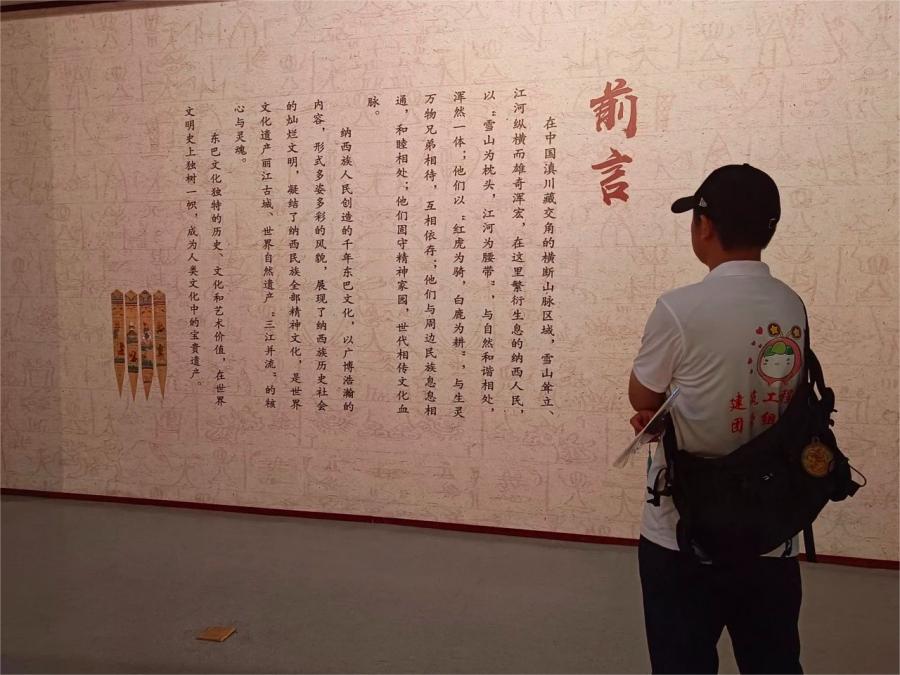 前言
在中国滇川藏交角的横断山脉区域，雪山耸立、
江河纵横而雄奇浑宏，在这里繁衍生息的纳西人民，
以“雪山为枕头，江河为腰带”，与自然和谐相处，
浑然一体；他们以“红虎为骑，白鹿为耕”，与生灵
万物兄弟相待，互相依存；他们与周边民族息息相
通，和睦相处；他们固守精神家园，世代相传文化血
脉。
纳西族人民创造的千年东巴文化，以广博浩瀚的
内容，形式多姿多彩的风貌，展现了纳西族历史社会
的灿烂文明，凝结了纳西民族全部精神文化，是世界
文化遗产丽江古城、世界自然遗产“三江并流”的核
心与灵魂。
东巴文化独特的历史、文化和艺术价值，在世界
文明史上独树一帜，成为人类文化中的宝贵遗产。
建筑工程
团 组